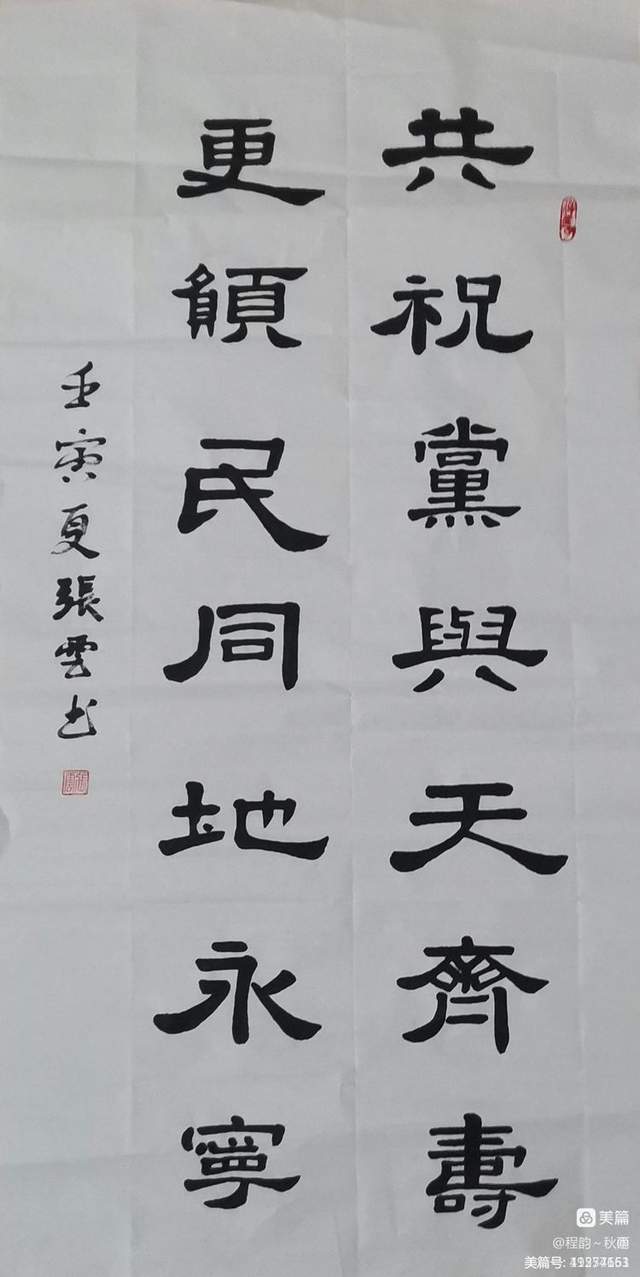 共祝黨與天齊壽
更願民同地永寧
壬寅夏張雲书
美篇
@程韵～秋
美篇号: